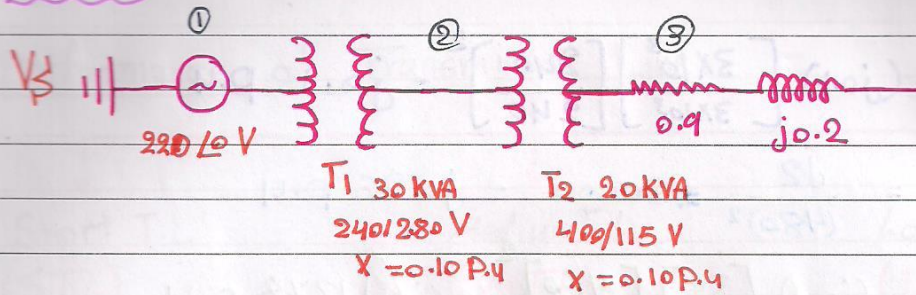 ① ② ③
Vs
220∠0 V
0.9
j0.2
T1 30 KVA
240/280 V
X = 0.10 P.u
T2 20 KVA
400/115 V
X = 0.10 P.u